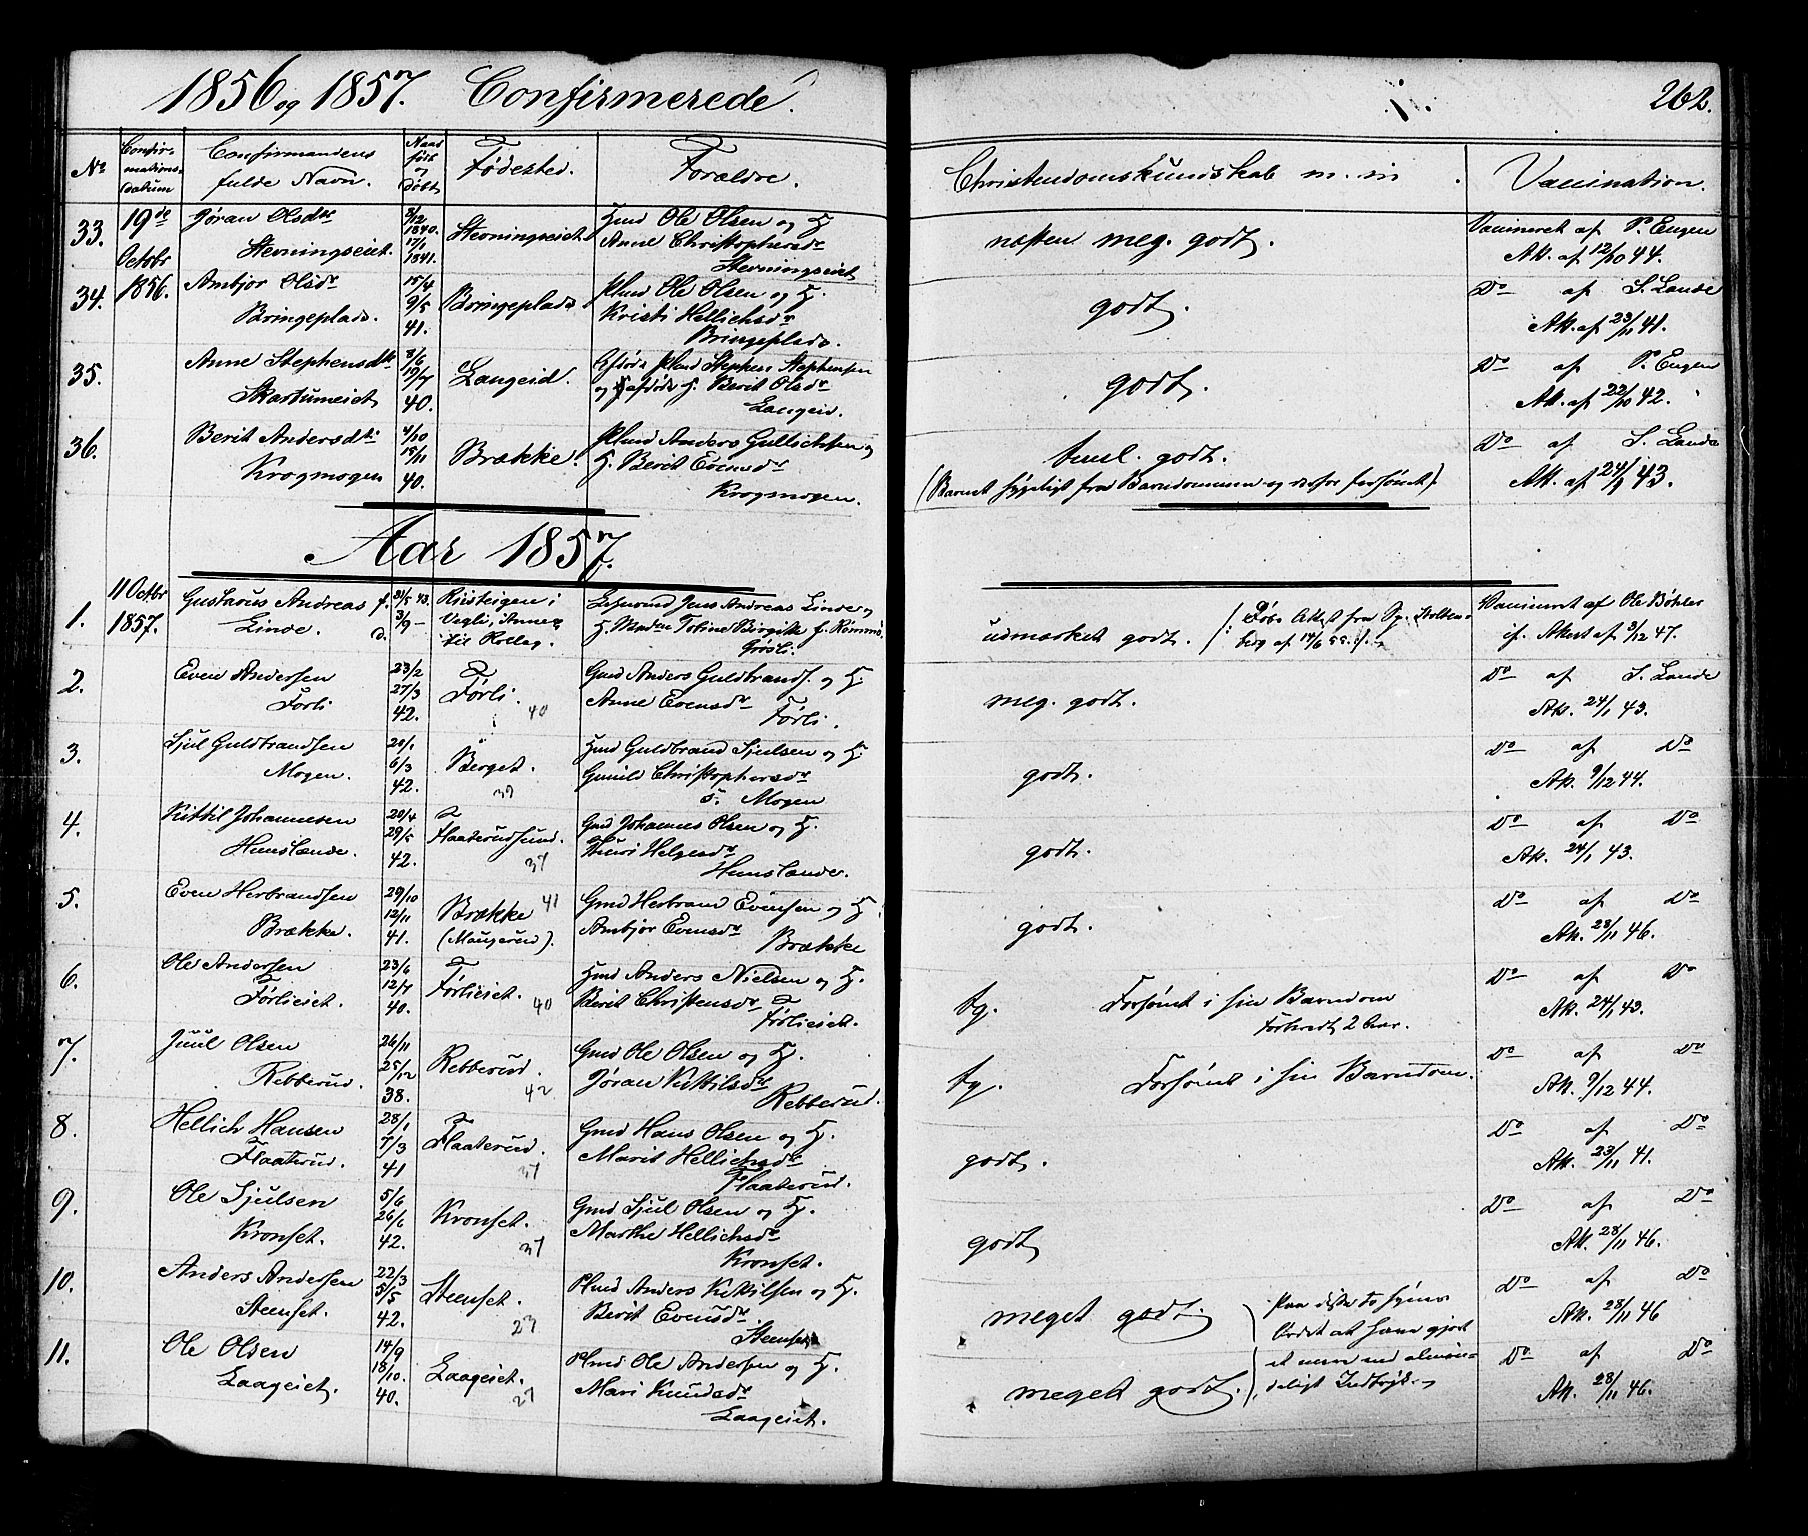 1856 og 1857. Confirmerede.
262.
No
Confirmationsdatum
Confirmandens fulde Navn.
Naar født og døbt
Fødested.
Forældre.
Christendomskundskab m. m.
Vaccination.
33. 19de Octobr 1856.
Jøran Olsdtr
Stevningseiet.
3/12 1840. 17/1 1841.
Stevningseiet
Hmd Ole Olsen og H.
Anne Christophersdr
Stevningseiet
næsten meg. godt.
Vaccineret af P. Engen
Att. af 12/10 44.
34.
Ambjør Olsdr
Bringeplads.
15/4 9/5 41.
Bringeplads.
Plmd Ole Olsen og H.
Kristi Hellichsdr
Bringeplads.
godt.
Do af S. Lande
Att. af 23/11 41.
35.
Anne Stephensdtr
Skartumeiet
3/6 19/7 40.
Langeid.
Afdøde Plmd Stephen Stephensen
og afdøde H. Berit Olsdr
Langeid.
godt.
Do af P. Engen
Att. af 22/10 42.
36.
Berit Andersdtr
Krogmogen
4/10 15/11 40.
Brække.
Plmd Anders Gullichsen og
H. Berit Evensdr
Krogmogen.
temml. godt.
(Barnet sygeligt fra Barndommen og derfor forsømt).
Do af S. Lande
Att. af 24/1 43.
Aar 1857.
1. 11 Octbr 1857.
Gustavus Andreas
Linde.
f. 31/5 43.
d. 3/9 —
Risteigen i
Vegli, Annex
til Rollag.
Lensmand Jens Andreas Linde og
H. Madm Tobine Birgitte f. Rømmo
Grøsli.
udmærket godt.
(: Døbe Attest fra Sp. Stoltenberg af 14/6 55. :)
Vaccineret af Ole Bøhler
if. Attest af 3/12 47.
2.
Even Andersen
Førli
23/2 27/3 42.
Førli.
40
Gmd Anders Guldbrands. og H.
Anne Evensdr
Førli.
meg. godt.
Do af S. Lande
Att. 24/1 43.
3.
Sjul Guldbrandsen
Mogen.
20/1 6/3 42.
Berget.
39
Hmd Guldbrand Sjulsen og H.
Gunild Christophersdr
Mogen
godt.
Do af Do
Att. 9/12 44.
4.
Kittil Johannesen
Hemslande.
20/4 29/5 42.
Flaaterudsund.
37
Gmd Johannes Olsen og H.
Thuri Helgesdr
Hemslande.
godt.
Do af Do
Att. 24/1 43.
5.
Even Herbrandsen
Brække.
29/10 12/11 41.
Brække 41
(Maugerud).
Gmd Herbrand Evensen og H.
Ambjør Evensdr
Brække
godt.
Do af Do
Att. 28/11 46.
6.
Ole Andersen
Førlieiet.
23/6 12/7 40.
Førlieiet.
40
Hmd Anders Nielsen og H.
Berit Christensdr
Førlieiet.
tg. Forsømt i sin Barndom
Forberedt 2 Aar.
Do af Do
Att. 24/1 43.
7.
Juul Olsen
Rebberud.
26/11 25/12 38.
Rebberud.
42
Gmd Ole Olsen og H.
Jøran Kittilsdr
Rebberud.
tg. Forsømt i sin Barndom.
Do af Do
Att. 9/12 44.
8.
Hellich Hansen
Flaaterud.
28/1 7/3 41
Flaaterud.
37
Gmd Hans Olsen og H.
Marit Hellichsdr
Flaaterud.
godt.
Do af Do
Att. 23/11 41.
9.
Ole Sjulsen
Kronset.
5/6 26/6 42.
Kronset.
37
Gmd Sjul Olsen og H.
Marthe Hellichsdr
Kronset.
godt
Do af Do
Att. 28/11 46.
10.
Anders Andersen
Steenset.
22/3 5/5 42.
Steenset.
27
Plmd Anders Kittilsen og H.
Berit Evensdr
Steenset
meget godt.
Paa disse to synes
Ordet at have gjort
et mere end almindeligt Indtryk.
Do af Do
Att. 28/11 46
11.
Ole Olsen
Laageiet.
14/9 18/10. 40.
Laageiet.
27
Plmd Ole Andersen og H.
Mari Knudsdr
Laageiet.
meget godt.
Do af Do
Att. 28/11 46.